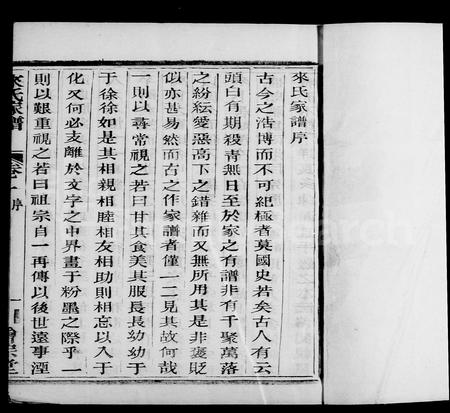 來氏家譜序
古今之浩博而不可紀極者莫國史若矣古人有云
頭白有期殺青無日至於家之有譜非有千聚萬落
之紛紜愛惡高下之錯雜而又無所用其是非褒貶
似亦甚易然而古之作家譜者僅一二見其故何哉
一則以尋常視之若曰甘其食美其服長長幼幼于
于徐徐如是其相親相睦相友相助則相忘以入于
化又何必支離於文字之中界畫于粉墨之際乎一
則以艱重視之若曰祖宗自一再傳以後世遠事湮
來氏家譜 卷一 序 一 會宗堂